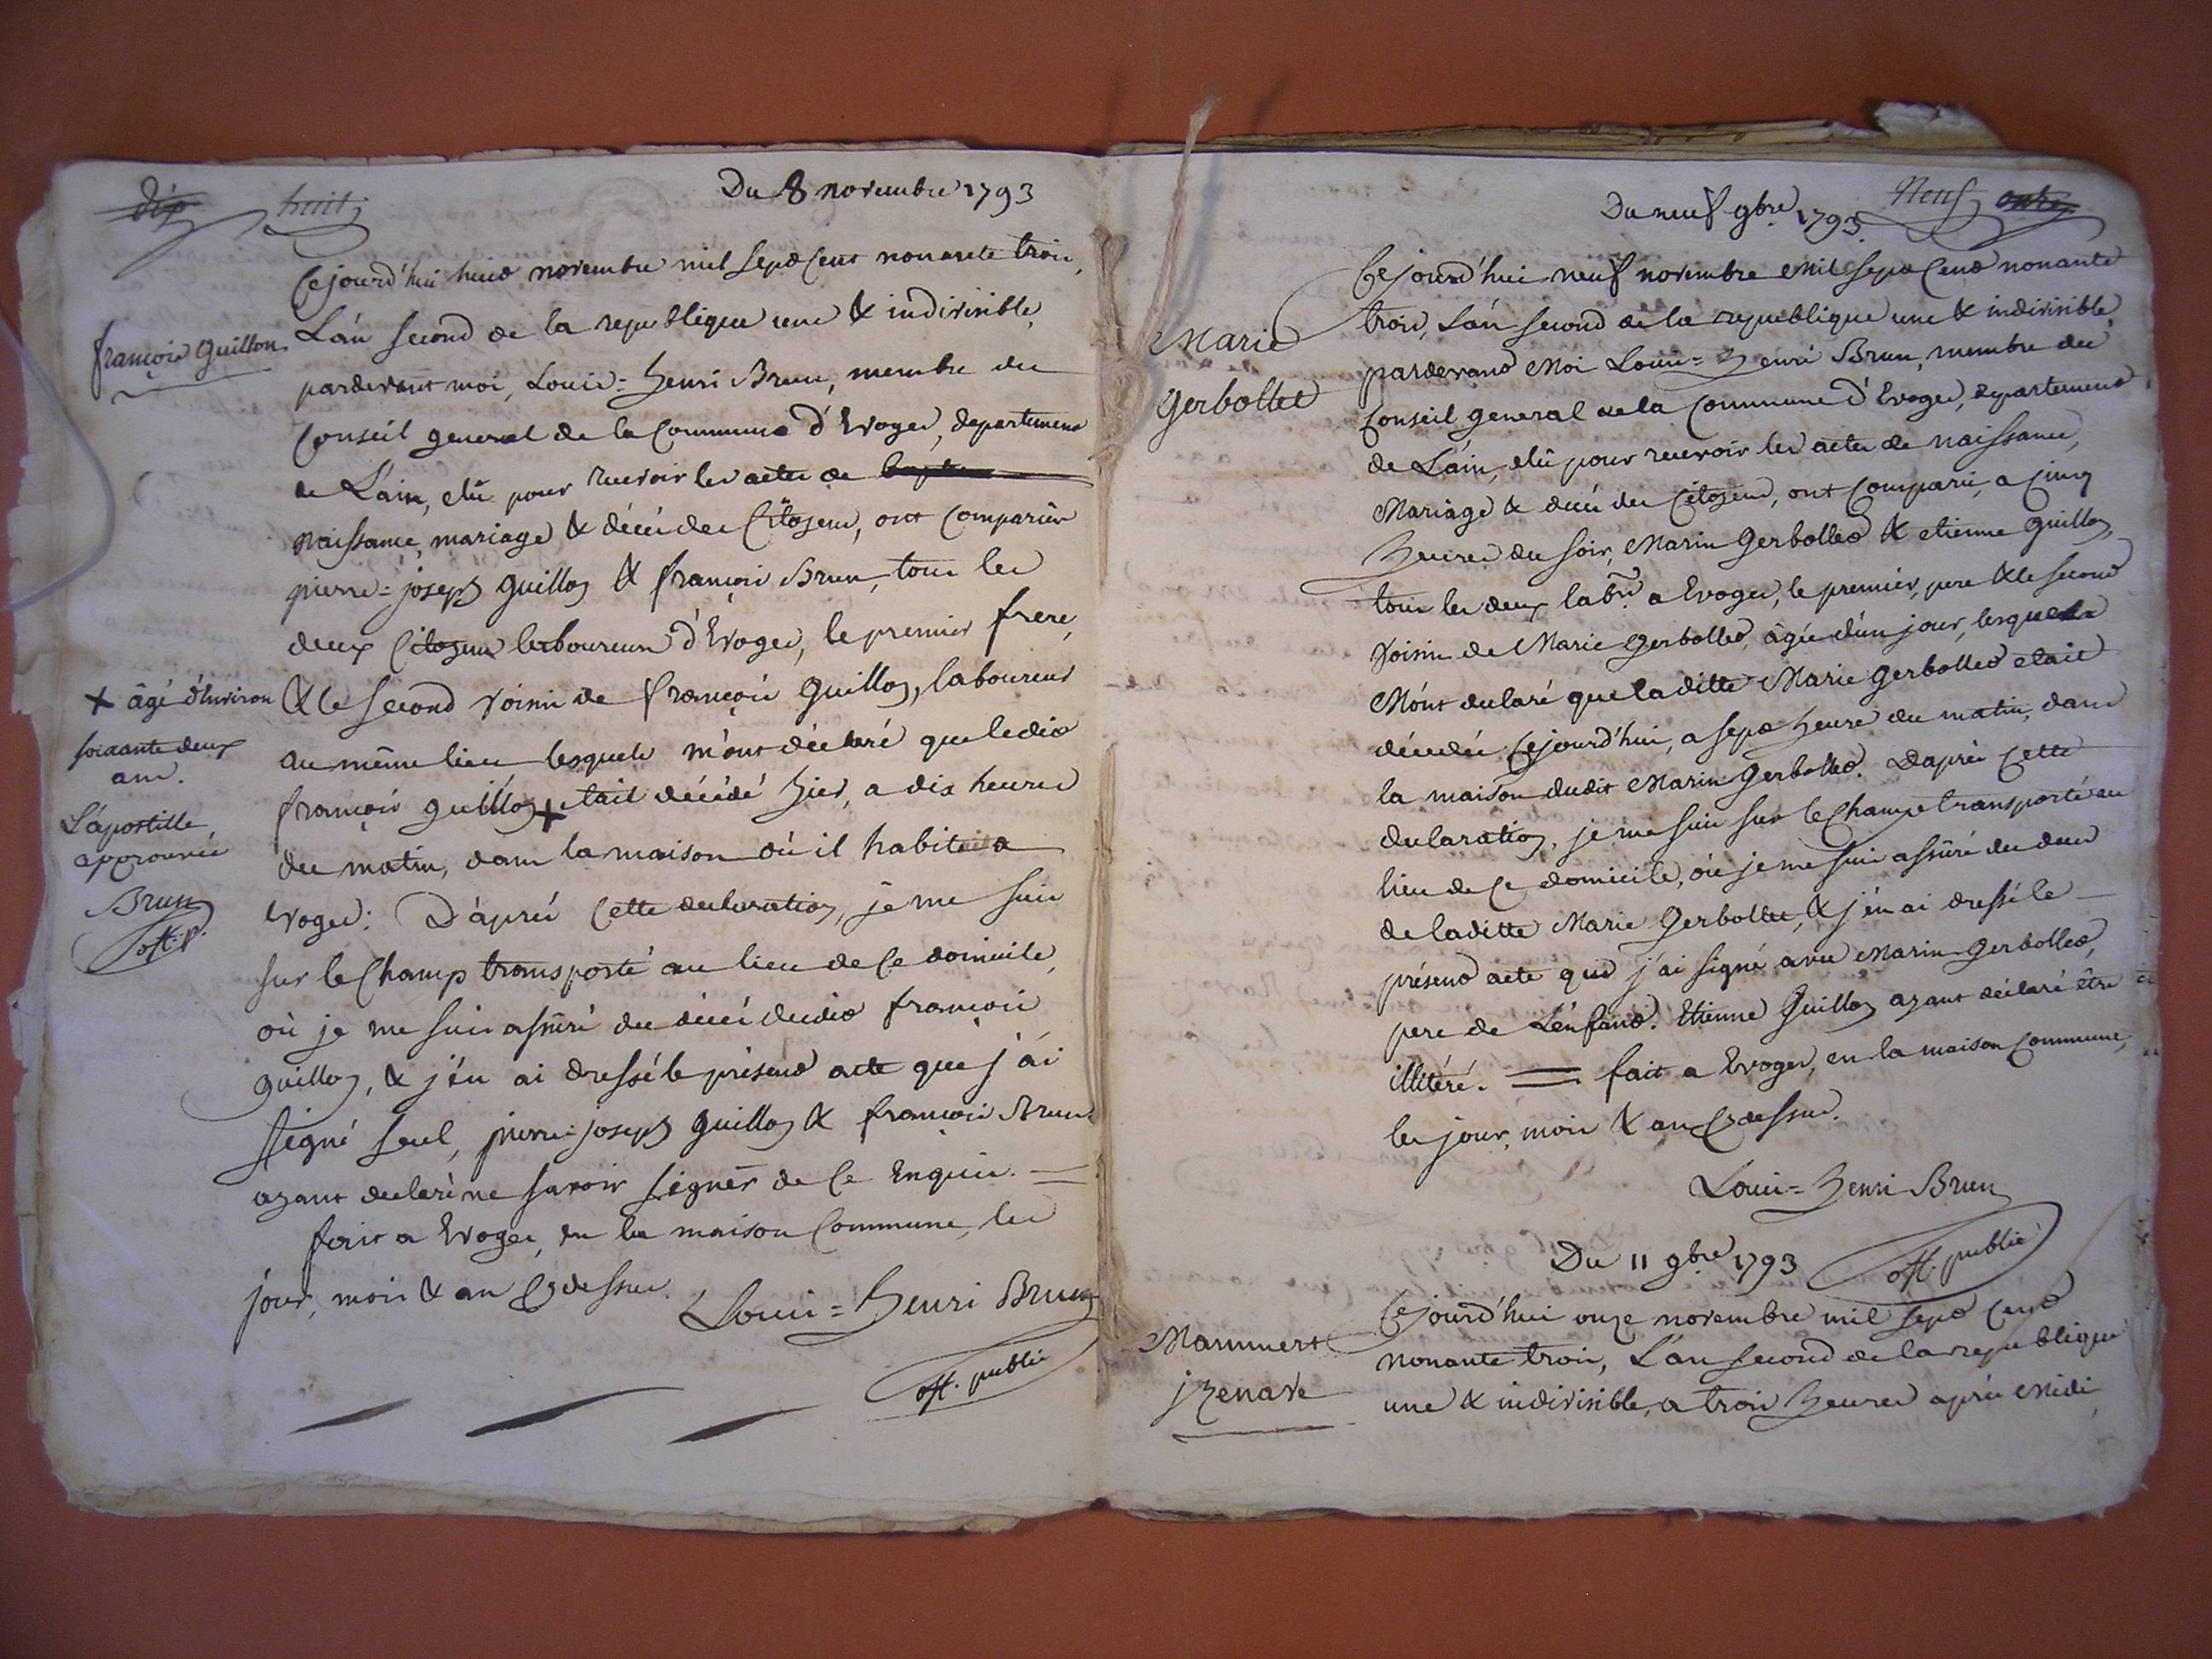 dix huit
Du 8 novembre 1793
Cejourd'hui huit novembre mil sept cent nonante trois,
L'an second de la republique une & indivisible,
françois Guillon
pardevant moi, Louis=henri Brun, membre du
Conseil general de la Commune d'Evoges, departement
de L'ain, elû pour recevoir les actes de
naissance, mariage & décès des Citoyens, ont comparûs
pierre=joseph guillon & françois Brun, tous les
deux Citoyens laboureurs d'Evoges, le premier frere,
& le second voisin de françois guillon, laboureur
au même lieu lesquels m'ont déclaré que ledit
françois guillon + etait décédé hier, a dix heures
du matin, dans la maison où il habitait a
Evoges: D'après Cette declaration, je me suis
sur le Champ transporté au lieu de Ce domicile,
où je me suis assûré du décès dudit françois
guillon, & j'en ai dressé le présent acte que j'ai
signé seul, pierre=joseph guillon & françois Brun
ayant declaré ne savoir signer de Ce Enquis. =
fait a Evoges, en la maison Commune, les
jour, mois & an Cy dessus.
Louis=henri Brun
off. public
+ âgé d'Environ
soixante deux
ans.
L'apostille
approuvée
Brun
off. p.
Du neuf 9bre 1793.
Neuf onze
Cejourd'hui neuf novembre mil sept Cent nonante
trois, L'an second de la republique une & indivisible,
Marie
Gerbollet
pardevant Moi Louis=henri Brun, membre du
Conseil general de la Commune d'Evoges, departement
de L'ain, elû pour recevoir les actes de naissance,
Mariage & décès des Citoyens, ont Comparu, a Cinq
heures du soir, Marin Gerbollet & etienne guillon,
tous les deux labrs. a Evoges, le premier, pere & le second
voisin de Marie Gerbollet, âgée d'un jour, lesquels
M'ont declaré que laditte Marie Gerbollet etait
décédée Cejourd'hui, a sept heure du matin, dans
la maison dudit Marin Gerbollet. D'après Cette
declaration, je me suis sur le Champ transporté au
lieu de Ce domicile, où je me suis assûré du décès
de laditte Marie Gerbollet, & j'en ai dressé le
présent acte que j'ai signé avec Marin Gerbollet,
pere de L'enfant. Etienne Guillon ayant déclaré être
illitéré. = fait a Evoges, en la maison Commune,
les jour, mois & an Cy dessus.
Louis=henri Brun
off. public
Du 11 9bre 1793
Cejourd'hui onze novembre mil sept Cent
Mammert
jzenave
nonante trois, L'an second de la republique
une & indivisible, a trois heures après Midi,